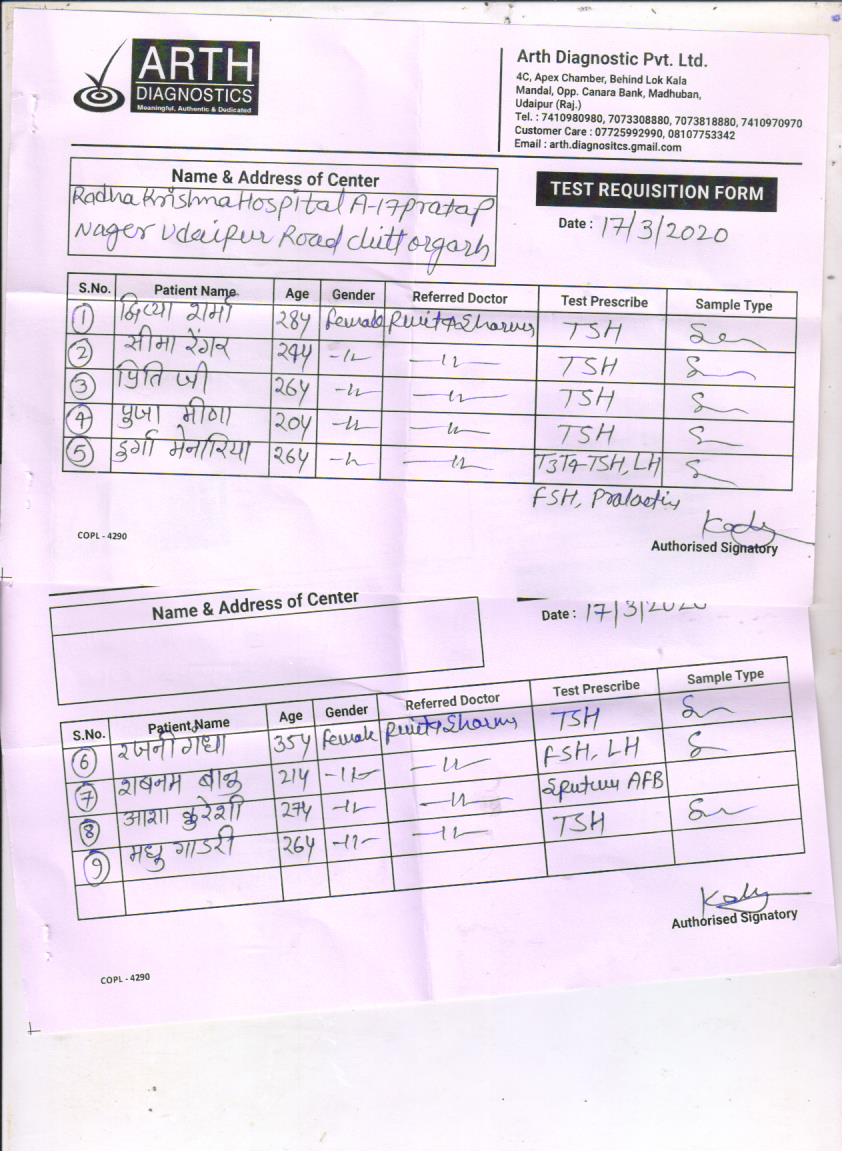 ARTH
DIAGNOSTICS
Meaningful, Authentic & Dedicated
Arth Diagnostic Pvt. Ltd.
4C, Apex Chamber, Behind Lok Kala
Mandal, Opp. Canara Bank, Madhuban,
Udaipur (Raj.)
Tel. : 7410980980, 7073308880, 7073818880, 7410970970
Customer Care : 07725992990, 08107753342
Email : arth.diagnositcs.gmail.com
Name & Address of Center
Radha Krishna Hospital A-17 pratap
Nager Udaipur Road chittorgarh
TEST REQUISITION FORM
Date : 17/3/2020
S.No. Patient Name Age Gender Referred Doctor Test Prescribe Sample Type
1 दिव्या शर्मा 28y female Sharma TSH
2 सीमा रेंगर 24y -11- -11- TSH
3 प्रिति जी 26y -11- -11- TSH
4 पुजा मीणा 20y -11- -11- TSH
5 दुर्गा मेनारिया 26y -11- -11- T3T4-TSH, LH
FSH, Prolactin
COPL - 4290
Authorised Signatory
Name & Address of Center
Date : 17/3/2020
S.No. Patient Name Age Gender Referred Doctor Test Prescribe Sample Type
6 रजनीगंधा 35y female Sharma TSH
7 शबनम बानु 21y -11- -11- FSH, LH
8 आशा कुरेशी 27y -11- -11- Sputum AFB
9 मधु गाडरी 26y -11- -11- TSH
Authorised Signatory
COPL - 4290